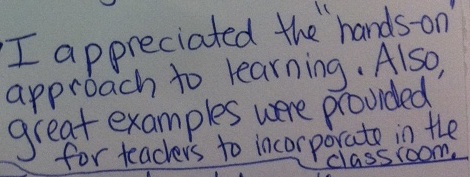 I appreciated the "hands-on"
approach to learning. Also,
great examples were provided
for teachers to incorporate in the
classroom.